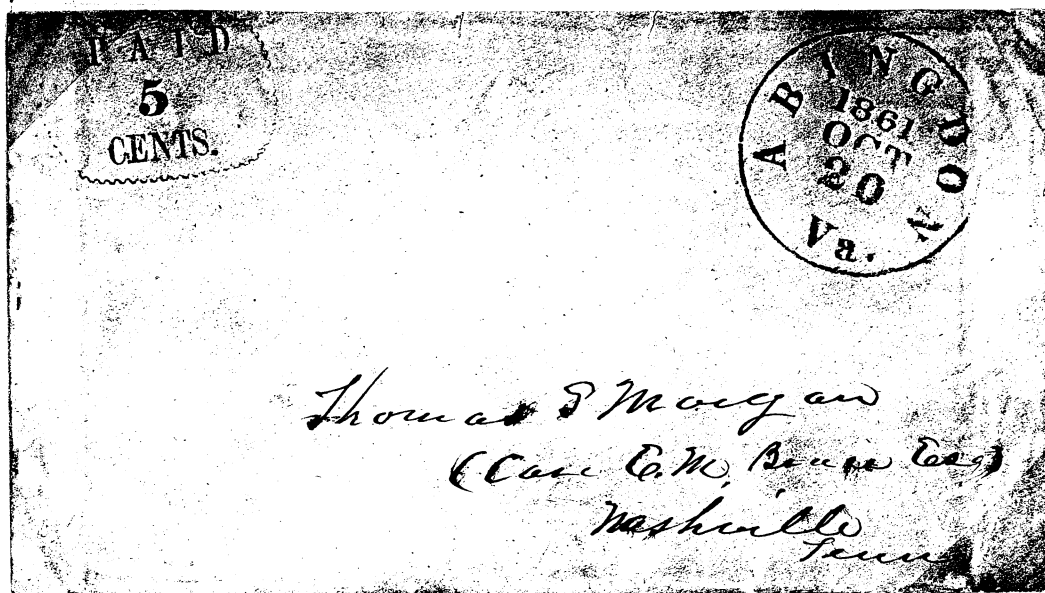 PAID
5
CENTS.
ABINGDON
1861
OCT
20
Va.
Thomas S Morgan
(Care E. M. Bruce Esq)
Nashville
Tenn